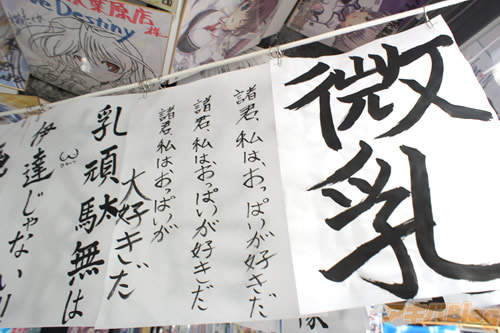 葉原店 様
e Destiny
微乳
諸君、私は、おっぱいが好きだ
諸君、私は、おっぱいが好きだ
諸君、私は、おっぱいが
大好きだ
乳頭駄無は
ω
伊達じゃない!!